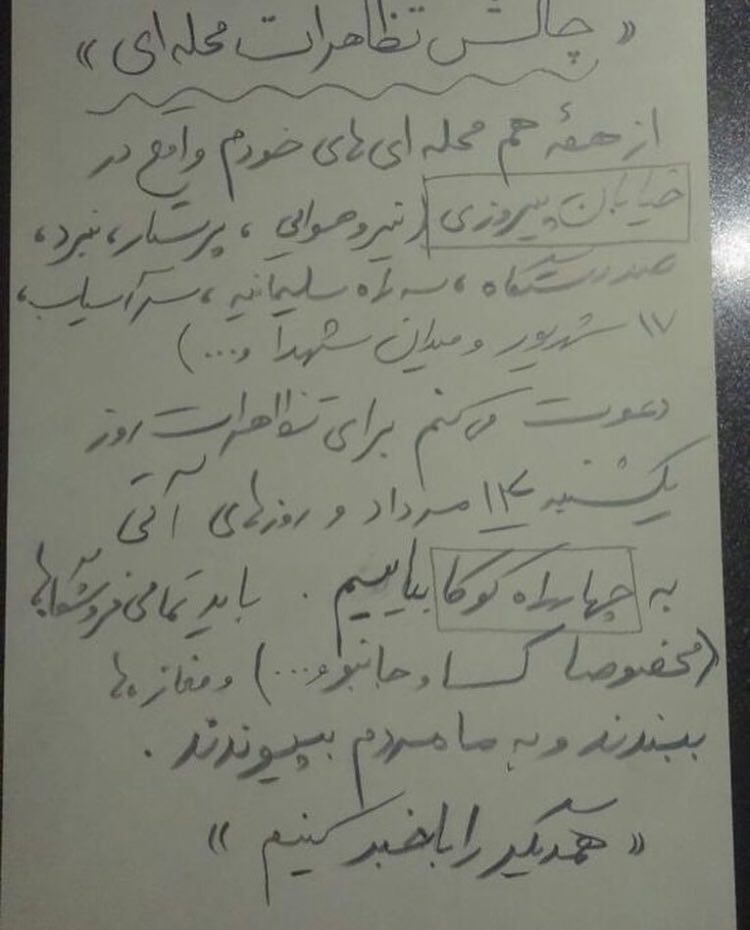 « چالش تظاهرات محله ای »
از همهٔ هم محله ای های خودم واقع در
خیابان پیروزی (نیروهوایی ، پرستار، نبرد،
صددستگاه ، سه راه سلیمانیه ، سرآسیاب،
۱۷ شهریور و میدان شهدا و...)
دعوت می کنم برای تظاهرات روز
یکشنبه ۱۴ مرداد و روزهای آتی
به چهارراه کوکا بیاییم . باید تمامی فروشگاهها
(مخصوصا کسا و جانبو و...) و مغازه ها
ببندند و به ما مردم بپیوندند .
« همدیگر را باخبر کنیم »